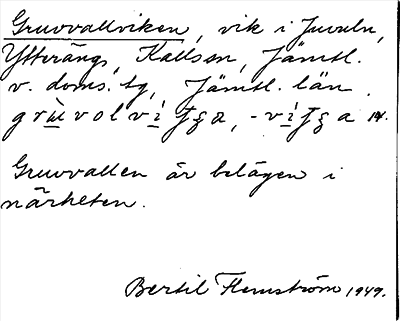 Gruvvallviken, vik i Juveln,
Ytteräng, Kallsen, Jämtl.
v. doms. tg, Jämtl. län.
Gruvvallen är belägen i
närheten.
Bertil Flemström 1949.